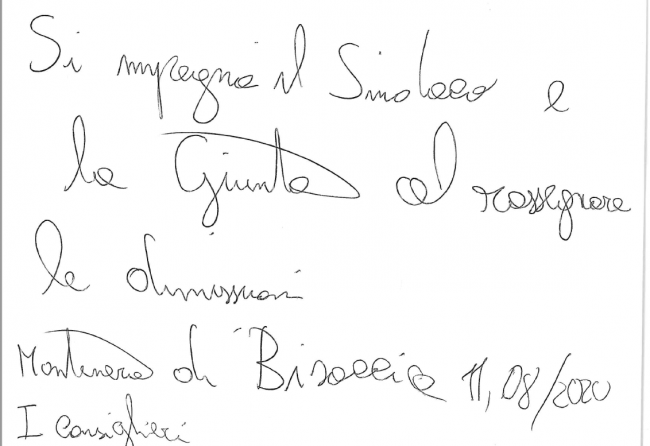 Si impegna il Sindaco e
la Giunta a rassegnare
le dimissioni
Montenero di Bisaccia 11,08/2020
I consiglieri